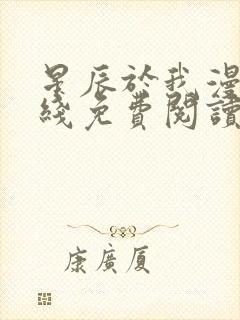 星辰於我漫
綫免費閱讀
康廣厦